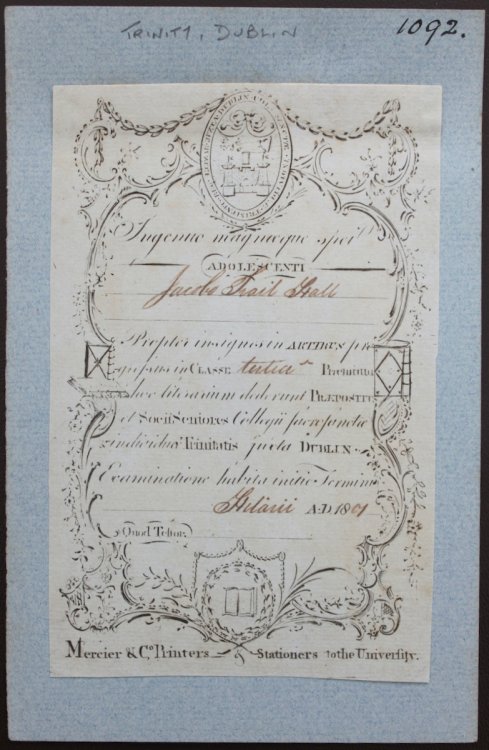 TRINITY, DUBLIN
1092.
Ingenuo magnæque spei
ADOLESCENTI
Jacobo Trail Hall
Propter insignes in ARTIBUS pro
gressus in CLASSE tertia Premium
hoc literarium dederunt PRÆPOSITUS
et Socii Seniores Collegii sacrosanctæ
et individuæ Trinitatis juxta DUBLIN
Examinatione habita initio Termini
Hilarii A:D 1801
Quod Testor
Mercier & Co. Printers & Stationers to the University.